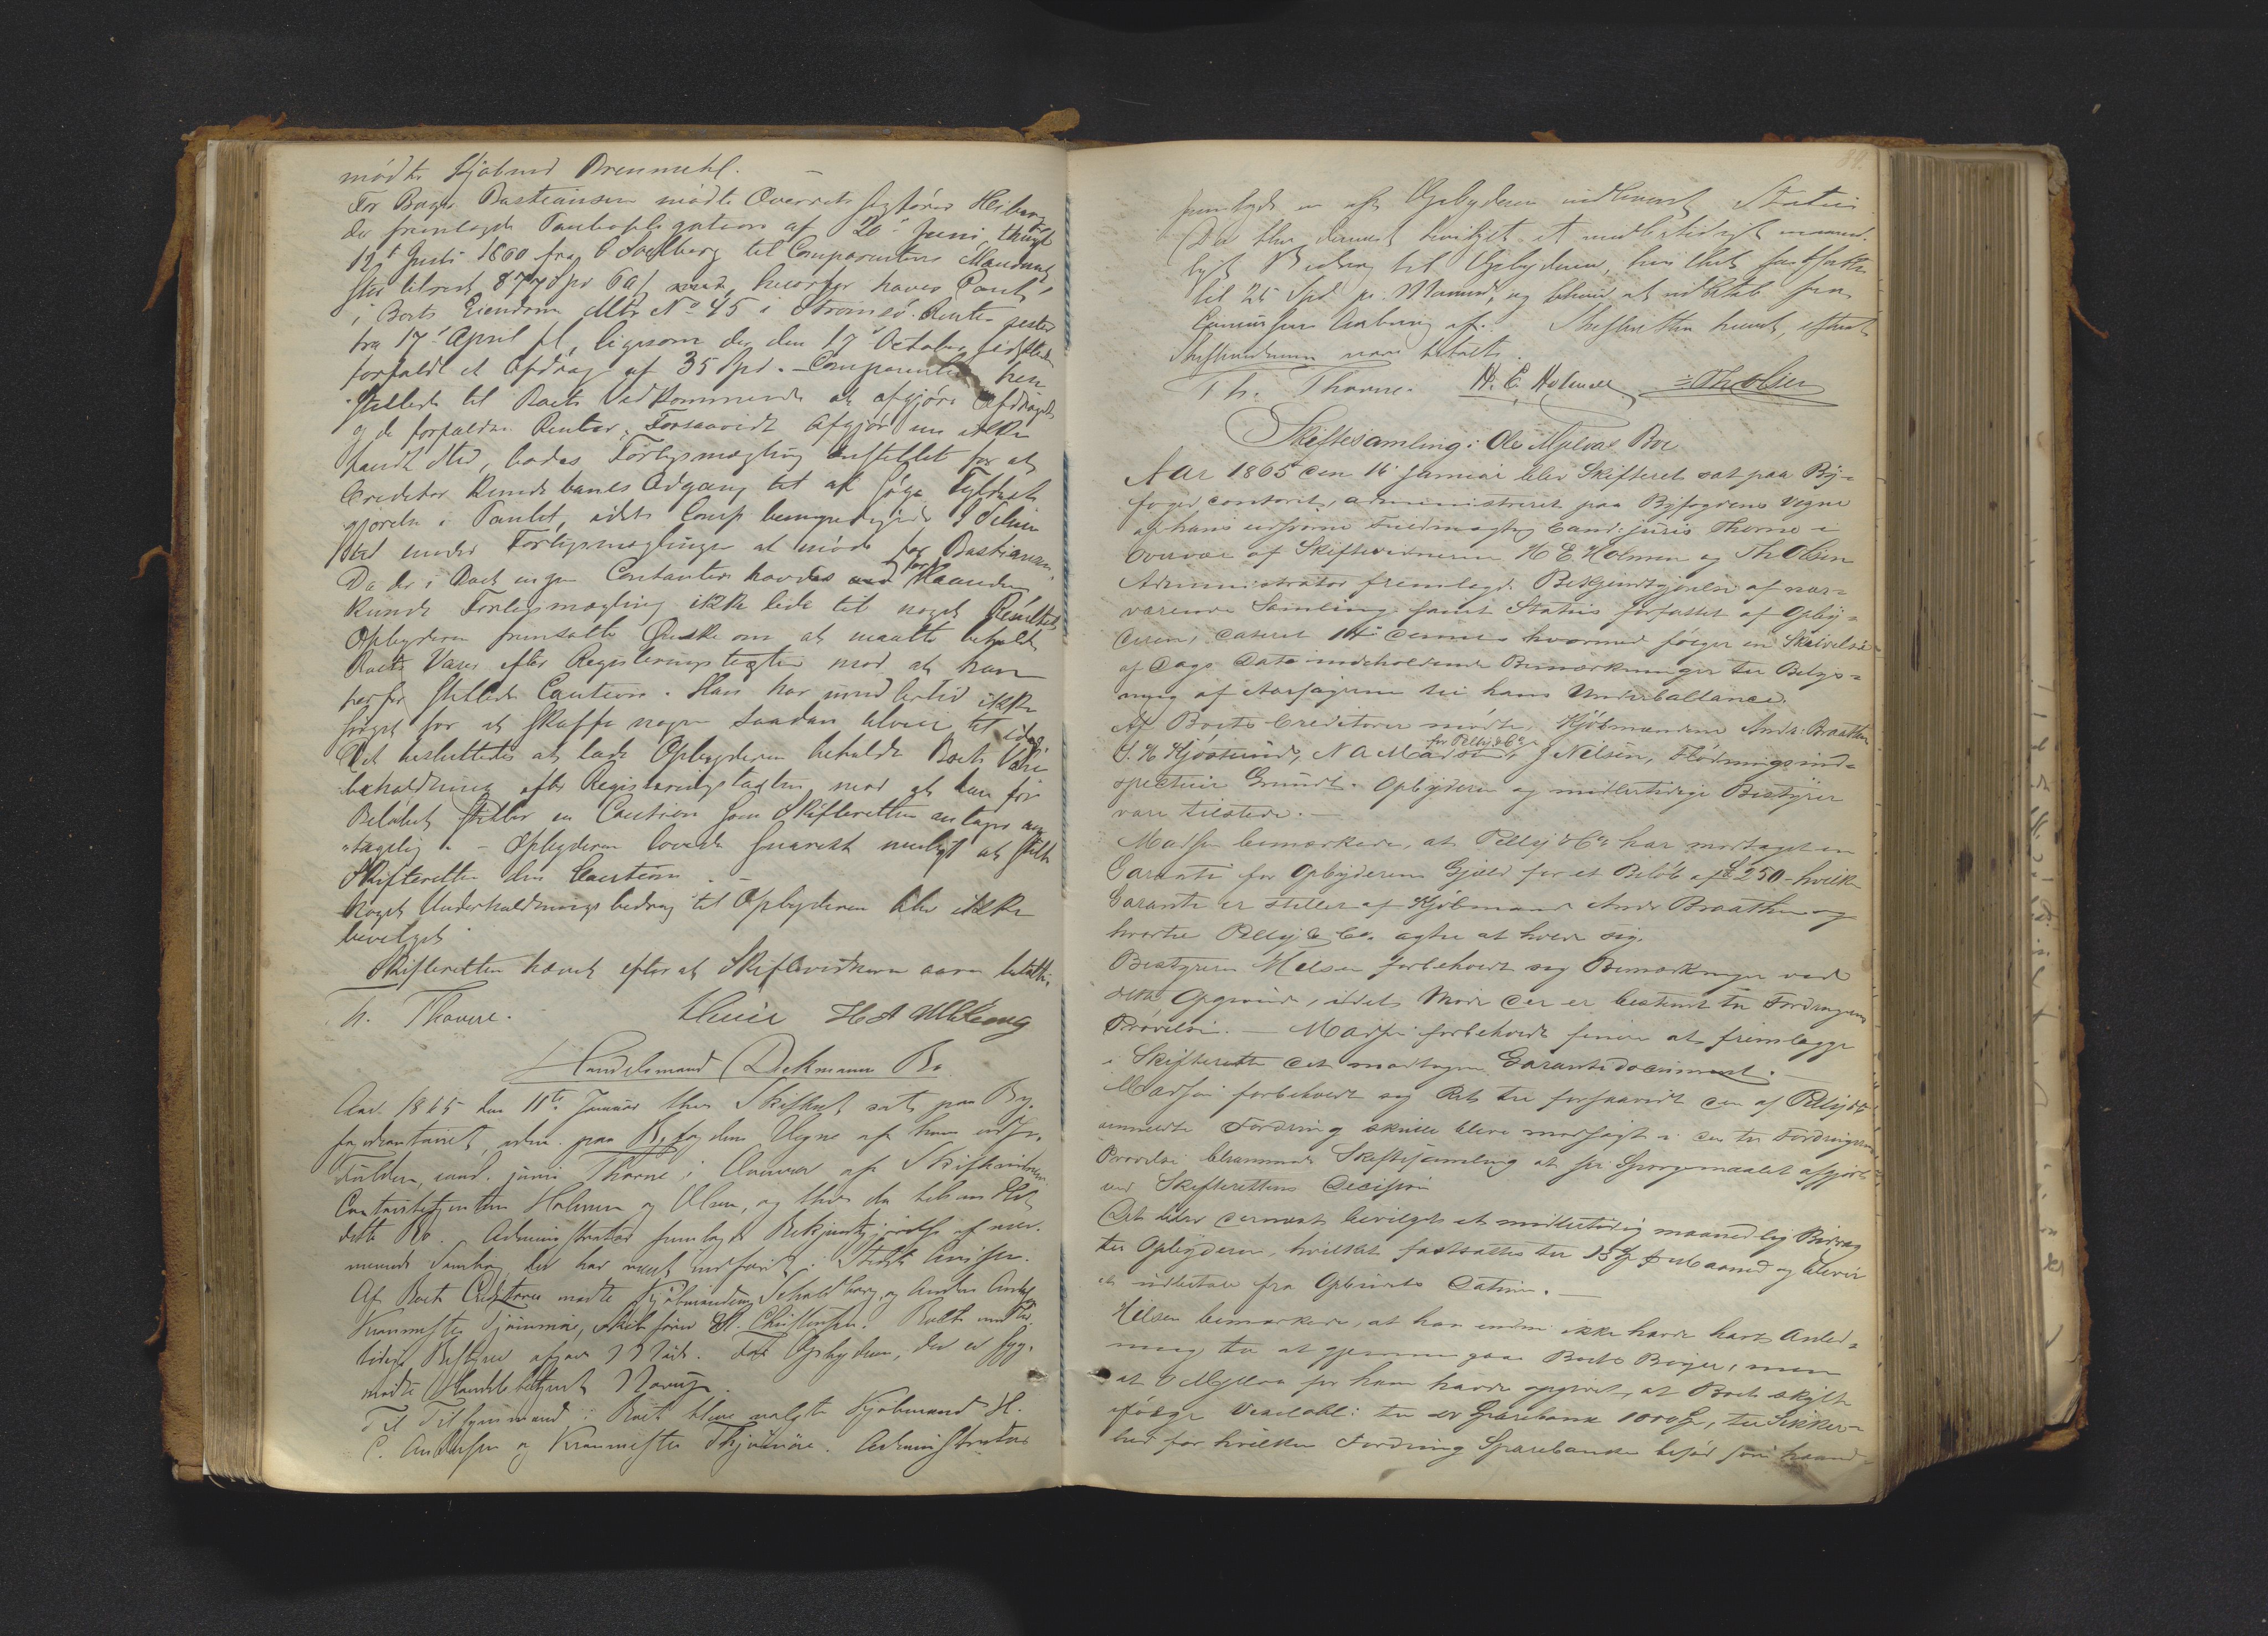 mødte Kjøbmd Drenmehl.
For Bager Bastiansen mødte Overretssagfører Heiberg
der fremlagde Pantobligation af 20 Juni, thingl.
12t Juli 1860 fra O Solberg til Comparentens Mandant
stor tilrest 877 Spd hvorfor haves Pant
i Boets Eiendom Mtr No 45 i Strømsø. Renter rester
fra 17 April f.A., ligesom der den 17 October sidstleden
forfaldt et Afdrag af 35 Spd. - Comparenten hen-
stillede til Boets Vedkommende at afgjøre Afdraget
og de forfaldne Renter. Forsaavidt Afgjørelsen ikke
fandt Sted, bades Forligsmægling anstillet for at
Creditor kunde banes Adgang til at søge Fyldest-
gjørelse i Pantet, idet Comp. bemyndigede
ved under Forligsmæglingen at møde for Bastiansen.
Da der i Boet ingen Contanter havdes for Haanden
kunde Forligsmægling ikke lede til noget Resultat.
Opbyderen fremsatte Ønske om at maatte beholde
Boets Varer efter Registeringstaxten mod at han
herfor stillede Caution. Han har imidlertid ikke
sørget for at skaffe nogen saadan
Det besluttedes at lade Opbyderen beholde Boets Vare-
beholdning efter Registeringstaxten mod at han for
Beløbet stiller en Caution som Skifteretten antager an-
tagelig. - Opbyderen lovede snarest muligt at stille
Skifteretten den Caution. -
Noget Underholdningsbidrag til Opbyderen blev ikke
bevilget
Skifteretten hævet efter at Skiftevidnerne vare betalte.
Th. Thorne.
Handelsmand Dekmann Bo
Aar 1865 den 11te Januar blev Skifteret sat paa By-
fogedcontoiret, adm. paa Byfogdens Vegne af hans edsv.
Fuldm, cand. juris Thorne i Overvær af Skiftevidnerne
Contoirbetjentene Holmen og Olsen, og blev da behandlet
dette Bo. Administrator fremlagde Bekjendtgjørelse af nær-
værende Samling, der har været indført i Stedets Aviser.
Af Boets Creditorer mødte Kjøbmændene Schultzberg og Anders
Kranmester Tjømøe, Skibsfører Chr. Christensen. Boets midler-
tidige Bestyrer afgav Møde. For Opbyderen, der er syg,
mødte Handelsbetjent
Til Tilsynsmænd i Boet bleve valgte Kjøbmand H.
C. Andersen og Kranmester Thjømøe. Administrator
fremlagde en af Opbyderen indleveret Status
Der blev dernæst bevilget et midlertidigt maaned-
ligt Bidrag til Opbyderen, hvilket fastsattes
til 25 Spd. pr. Maaned, og bliver at udbetale fra
Concursens Aabning af. Skifteretten hævet, efterat
Skiftevidnerne vare betalte.
Th. Thorne. H. E. Holmen Th Olsen
Skiftesamling i Ole Myhras Boe
Aar 1865 den 16 Januar blev Skifteret sat paa By-
fogedcontoiret, administreret paa Byfogdens Vegne
af hans edsvorne Fuldmægtig Cand: juris Thorne i
Overvær af Skiftevidnerne H E Holmen og Th Olsen
Administrator fremlagde Bekjendtgjørelse af nær-
værende Samling samt Status forfattet af Opby-
deren, dateret 14 dennes hvormed følger en Skrivelse
af Dags Dato indeholdende Bemærkninger til Belys-
ning af Aarsagerne til hans Underballance.
Af Boets Creditorer mødte Kjøbmændene Andr: Braathen
S. H Kjøsterud, N A Madsen for Pelly & Co, J Nelsen, Flødningsind-
specteur Grundt. Opbyderen og midlertidige Bestyrer
vare tilstede. -
Madsen bemærkede, at Pelly & Co har modtaget en
Garanti for Opbyderens Gjæld for et Beløb af £ 250 - hvilken
Garanti er stillet af Kjøbmand Andr Braathen og
hvortil Pelly & Co. agter at holde sig.
Bestyrer Nelsen forbeholdt sig Bemærkninger ved
dette Opgivende, i det Møde der er bestemt til Fordringernes
Prøvelse. - Madsen forbeholdt senere at fremlægge
i Skifteretten det modtagne Garantidocument. -
Madsen forbeholdt sig Ret til forsaavidt den af Pelly & Co
anmeldte Fordring skulde blive modsagt i den til Fordringernes
Prøvelse berammede Skiftesamling at faa Spørgsmaalet afgjort
ved Skifterettens Decision
Det blev dernæst bevilget et midlertidig maanedlig Bidrag
til Opbyderen, hvilket fastsattes til 15 Spd pr Maaned og bliver
at udbetale fra Opbudets Datum. -
Nelsen bemærkede, at han endnu ikke havde havt Anled-
ning til at gjennemgaa Boets Bøger, men
at O Myhra for ham havde opgivet, at Boet skyldte
ifølge Vexelobl: til Sparebank 1000 Spd, til Sikker-
hed for hvilken Fordring Sparebanken besad som haand-